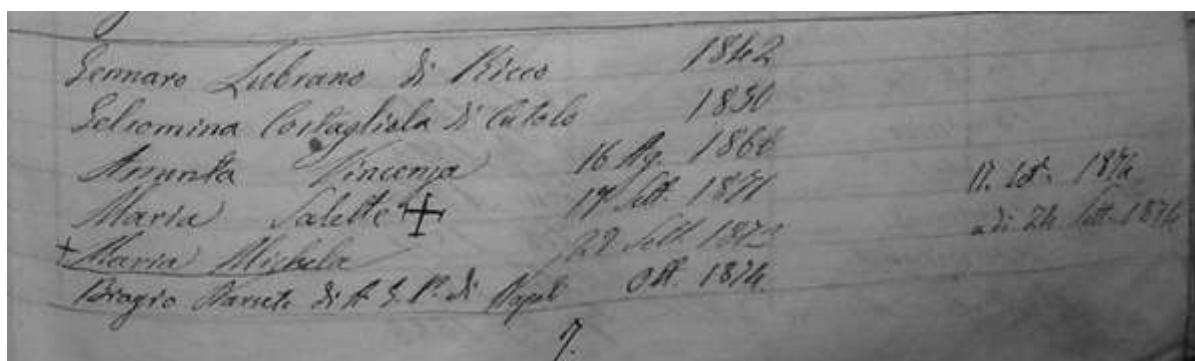 Gennaro Lubrano di Ricco 1842
Gelsomina Costagliola di Cutolo 1850
Assunta Vincenza 16 Ag. 1866
Maria Salette 17 Sett. 1871 17. Ott. 1874
Maria Michela 29. Sett. 1872 a di 24 Sett. 1874
Biagio di A. G. P. di Napoli Ott. 1874
7.